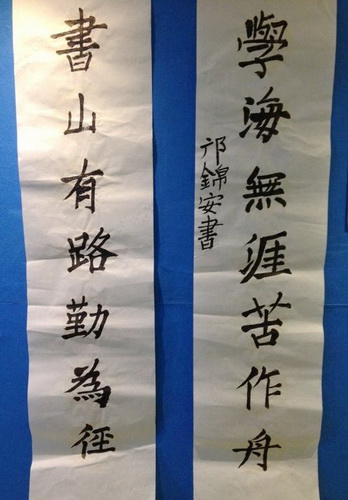 書山有路勤為径
學海無涯苦作舟
錦安書